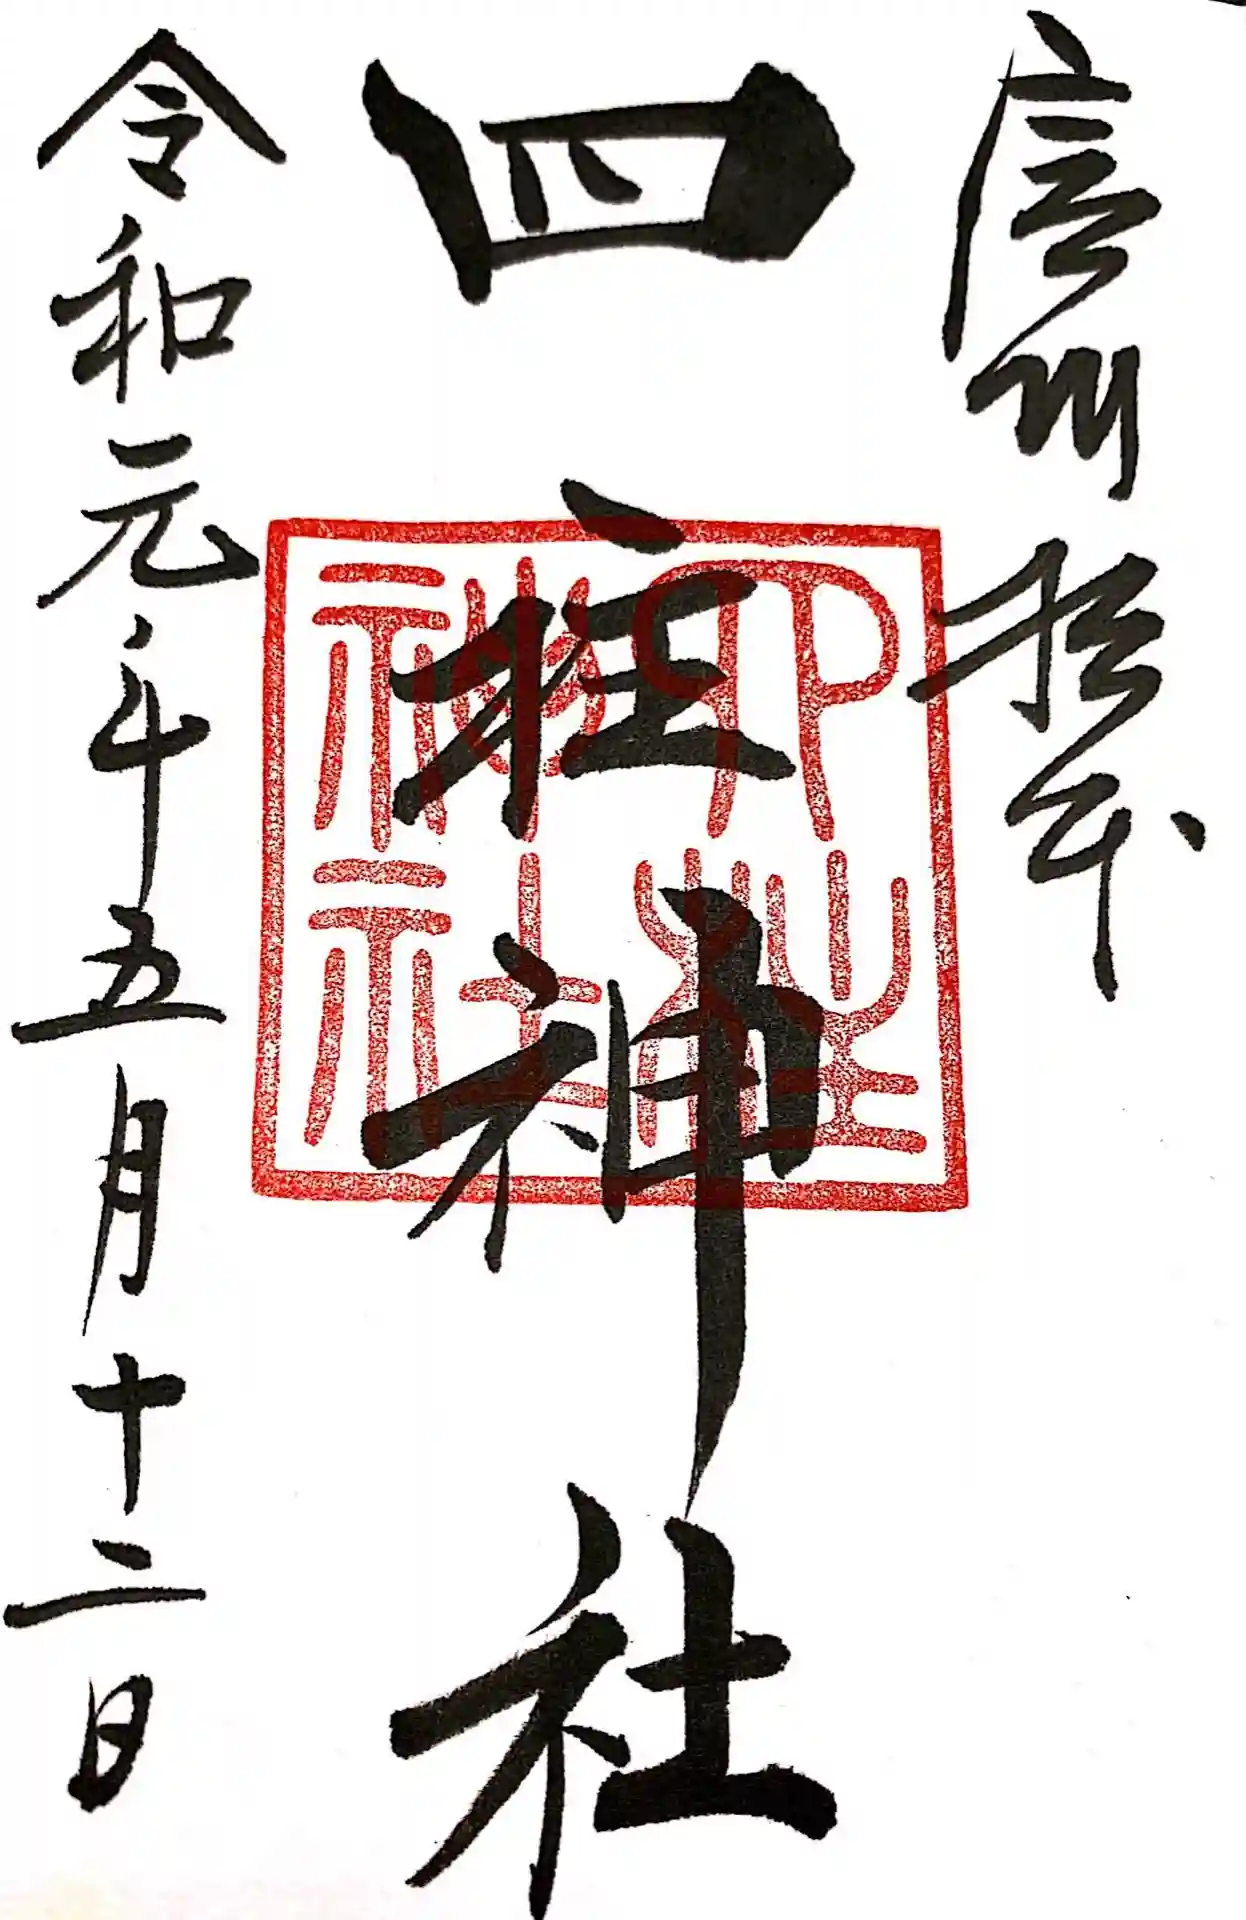 信州 松本
四柱神社
令和元年五月十二日
四柱
神社